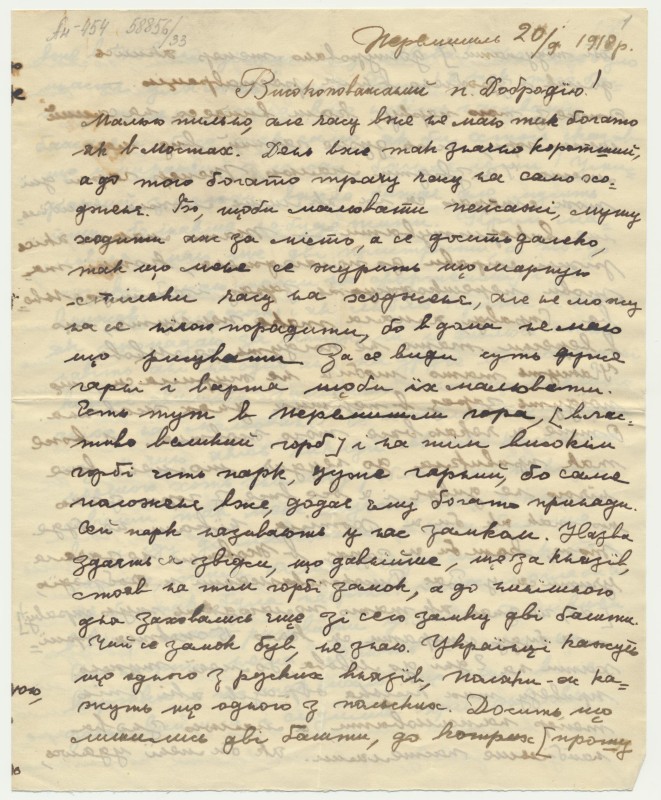 Ан-454 58856/33
1
Перемишль 20/X 1918 р.
Високоповажаний п. Добродію!
Малюю пильно, але часу вже не маю так богато
як в Мостах. День вже так значно коротший,
а до того богато трачу часу на само хо-
дженє. Бо, щоби малювати пейзажі, мушу
ходити аж за місто, а се досить далеко,
так що мене се журить що марную
стільки часу на ходженє, але не можу
на се нічого порадити, бо в дома не маю
що рисувати. За се види суть дуже
гарні і варта щоби їх малювати.
Єсть тут в Перемишли гора, [влас-
тиво великий горб] і на тім високім
горбі єсть парк, дуже гарний, бо саме
положенє вже, додає єму богато принади.
Сей парк називають у нас замком. Назва
здаєть ся звідси, що давнійше, ще за князів,
стояв на тім горбі замок, а до нинішного
дня заховались ище зі сего замку дві башти.
Чий се замок був, не знаю. Українці кажуть
що одного з руских князів, поляки-ж ка-
жуть що одного з польских. Досить, що
лишились дві башти, до котрих [прошу